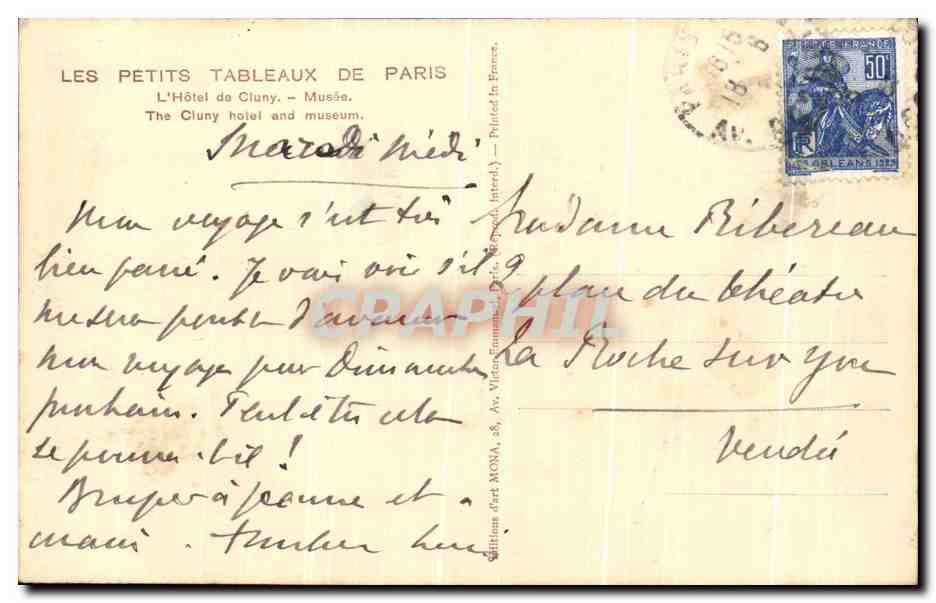 LES PETITS TABLEAUX DE PARIS
L'Hôtel de Cluny. – Musée.
The Cluny hotel and museum.
Mardi Midi
Mon voyage s'est très
bien passé. Je vais voir s'il
me sera possible d'avancer
mon voyage pour Dimanche
prochain. Peut-être cela
se pourra-t-il !
à Jeanne et a
Editions d'art MONA, 28, Av. Victor-Emmanuel, Paris. (Reprod. Interd.) — Printed in France.
POSTES FRANCE
50c
RF
ORLEANS 1929
AV.
18
Madame Ribereau
9 place du théatre
La Roche sur Yon
Vendée
CRAPHIL